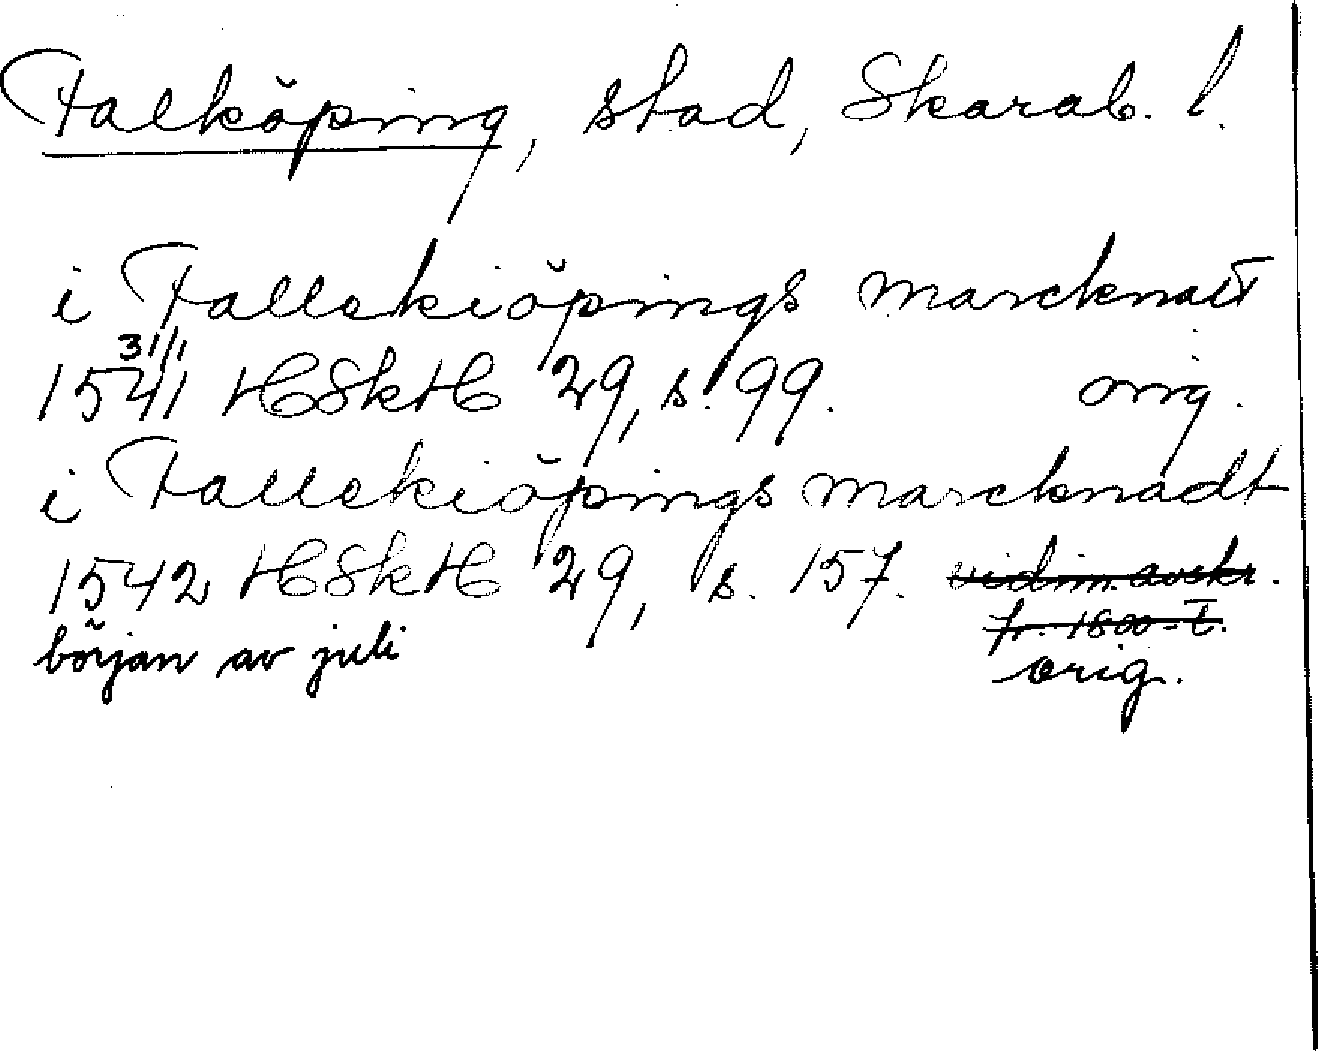 Falköping, stad, Skarab. l.
i Fallekiöpings marcknatt
31/1
1541 HSkH 29, s. 99. orig.
i Fallekiöpings marcknadt
1542 HSkH 29, s. 157. vidim. avskr.
början av juli fr. 1800-t.
orig.